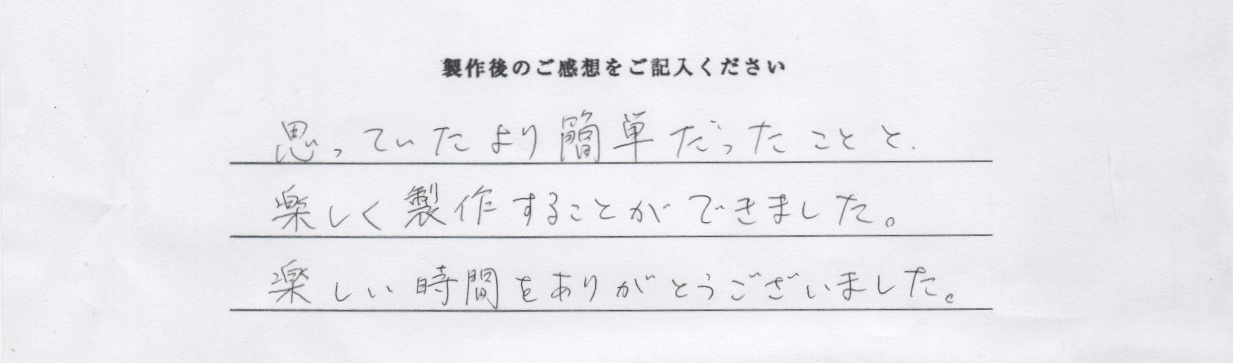 製作後のご感想をご記入ください
思っていたより簡単だったことと、
楽しく製作することができました。
楽しい時間をありがとうございました。